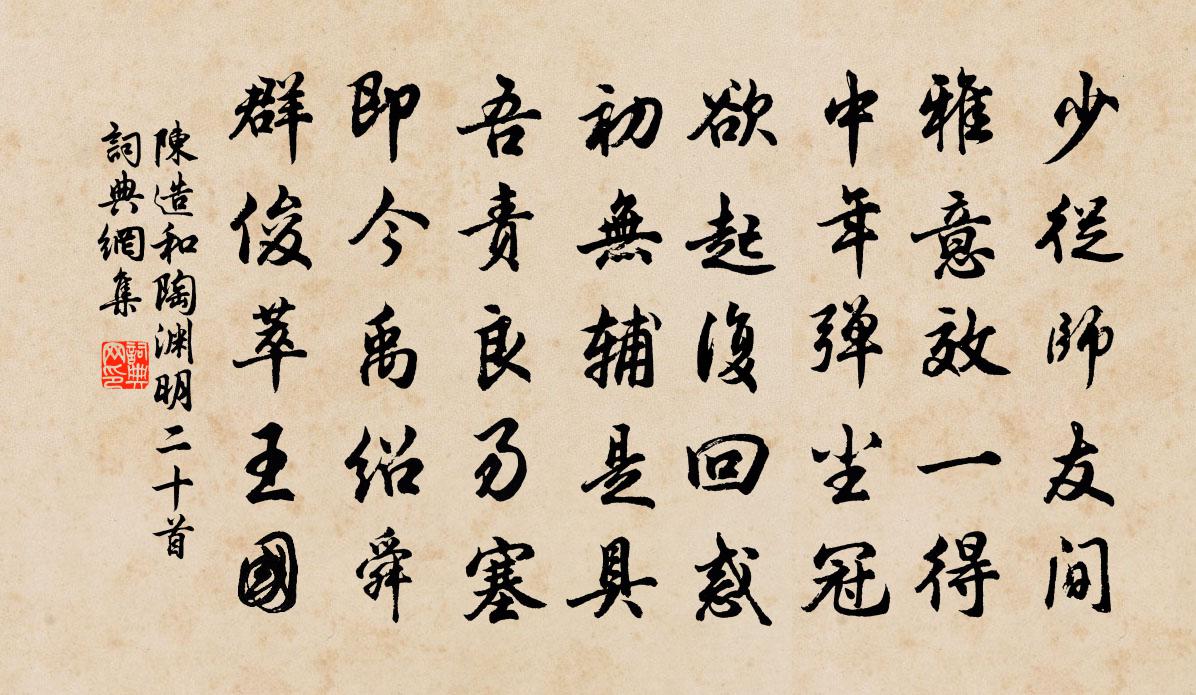 少從師友間
雅意效一得
中年彈坐冠
欲起復回惑
初無輔是具
吾責良易塞
即今禹紹舜
群俊萃王國
陳造和陶淵明二十首
詞典網集
詞典
网印